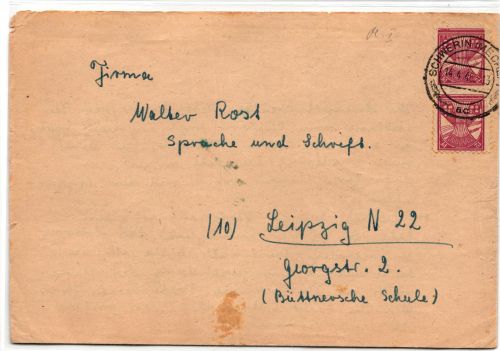 SCHWERIN (MECKL
14.4.46
ad
Firma
Walter Rost
Sprache und Schrift.
(10) Leipzig N 22
Georgstr. 2.
(Büttnersche Schule)